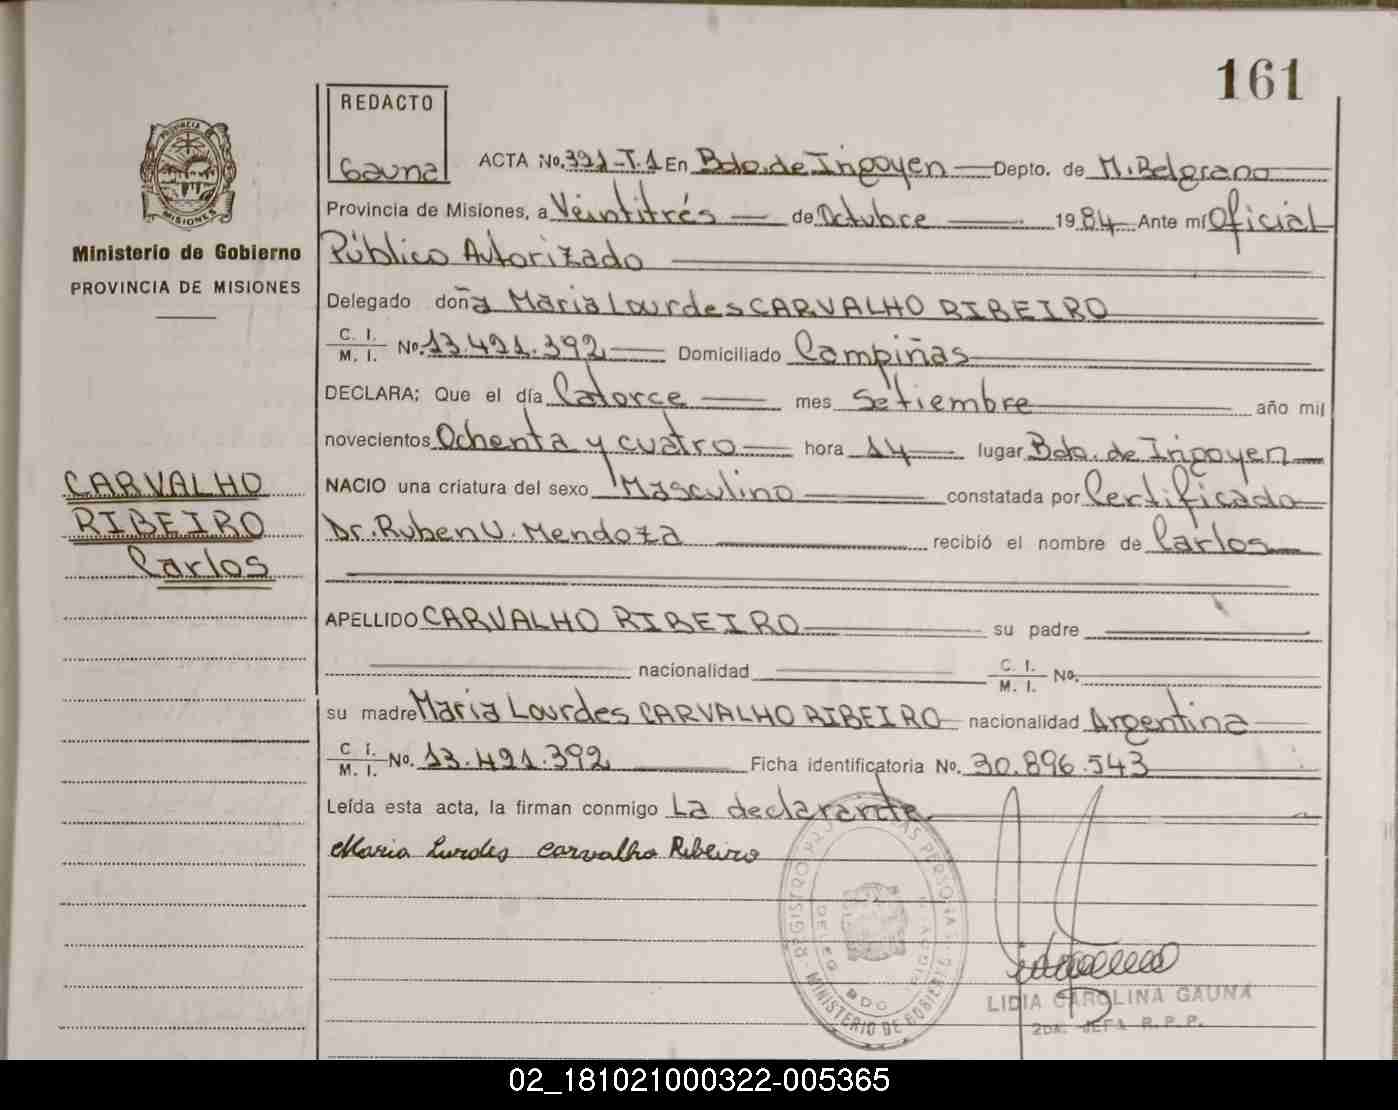 161
REDACTO
Gauna
PROVINCIA DE MISIONES
Ministerio de Gobierno
PROVINCIA DE MISIONES
ACTA No. 391-T.1 En Bdo. de Irigoyen Depto. de M. Belgrano
Provincia de Misiones, a Veintitrés de Octubre 1984 Ante mí Oficial
Público Autorizado
Delegado doña Maria Lourdes CARVALHO RIBEIRO
C. I. M. I. No. 13.491.392 Domiciliado Campiñas
DECLARA; Que el día Catorce mes Setiembre año mil
novecientos Ochenta y cuatro hora 14 lugar Bdo. de Irigoyen
CARVALHO
RIBEIRO
Carlos
NACIO una criatura del sexo Masculino constatada por Certificado
Dr. Ruben U. Mendoza recibió el nombre de Carlos
APELLIDO CARVALHO RIBEIRO su padre
nacionalidad C. I. M. I. No.
su madre Maria Lourdes CARVALHO RIBEIRO nacionalidad Argentina
C. I. M. I. No. 13.491.392 Ficha identificatoria No. 30.896.543
Leída esta acta, la firman conmigo La declarante
Maria Lurdes Carvalho Ribeiro
REGISTRO PERSONAS
MINISTERIO DE GOBIERNO
DELEG. BDO.
LIDIA CAROLINA GAUNA
2DA. JEFA R.P.P.
02_181021000322-005365